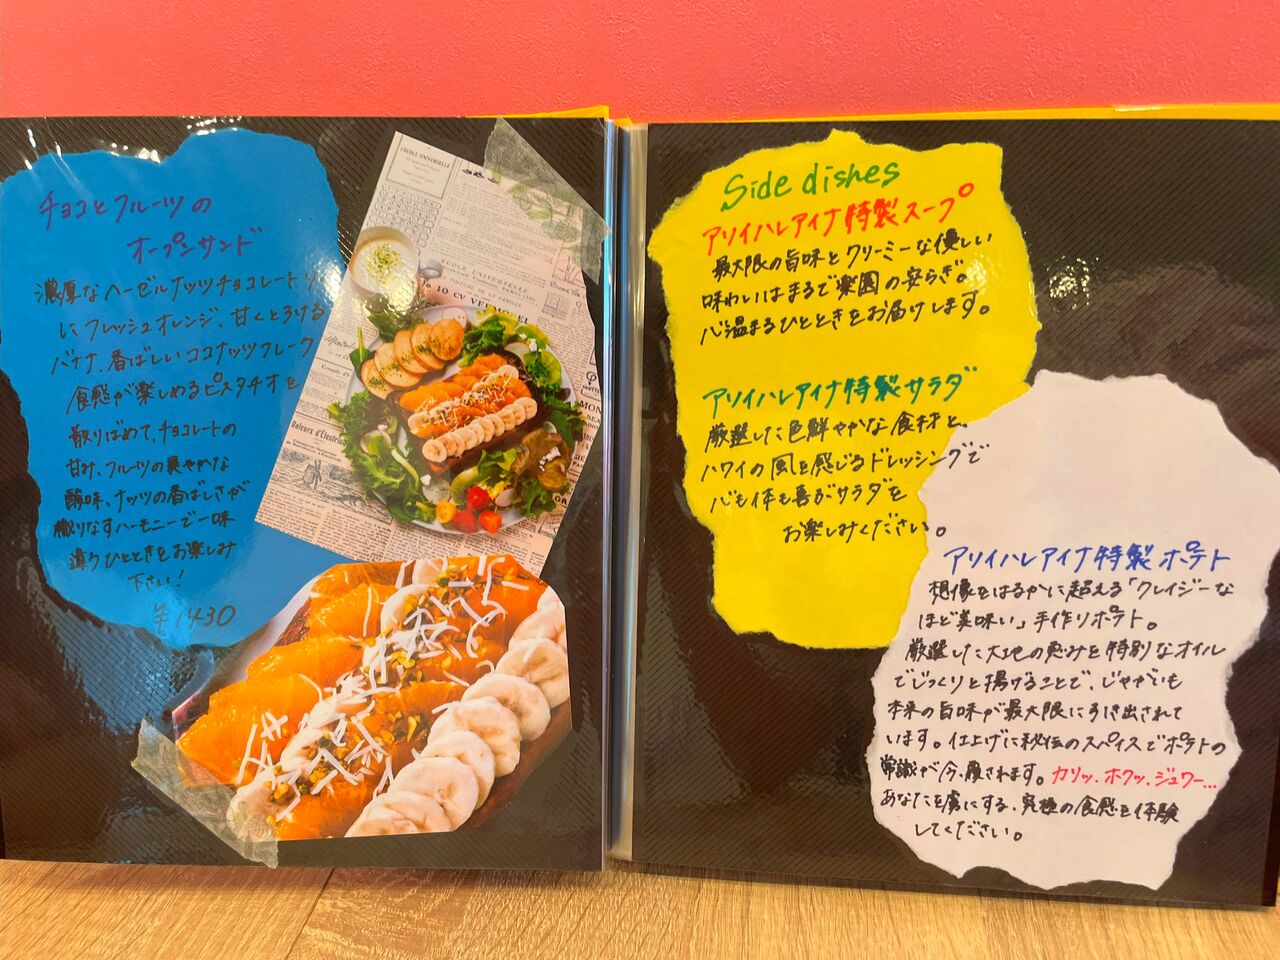 チョコとフルーツの
オープンサンド
濃厚なヘーゼルナッツチョコレート
にフレッシュオレンジ、甘くとろける
バナナ、香ばしいココナッツフレーク
食感が楽しめるピスタチオを
散りばめて、チョコレートの
甘み、フルーツの爽やかな
酸味、ナッツの香ばしさが
織りなすハーモニーで一味
違うひとときをお楽しみ
下さい!
¥1430
ÉCOLE UNIVERSELLE
ECOLE UNIVERSELLE
10 CV
Side dishes
アリイハレアイナ特製スープ
最大限の旨味とクリーミーな優しい
味わいはまるで楽園の安らぎ。
心温まるひとときをお届けします。
アリイハレアイナ特製サラダ
厳選した色鮮やかな食材と、
ハワイの風を感じるドレッシングで
心も体も喜ぶサラダを
お楽しみください。
アリイハレアイナ特製ポテト
想像をはるかに超える「クレイジーな
ほど美味い」手作りポテト。
厳選した大地の恵みを特別なオイル
でじっくりと揚げることで、じゃがいも
本来の旨味が最大限に引き出されて
います。仕上げに秘伝のスパイスでポテトの
常識が今、覆されます。カリッ、ホクッ、ジュワー…
あなたを虜にする、究極の食感を体験
してください。